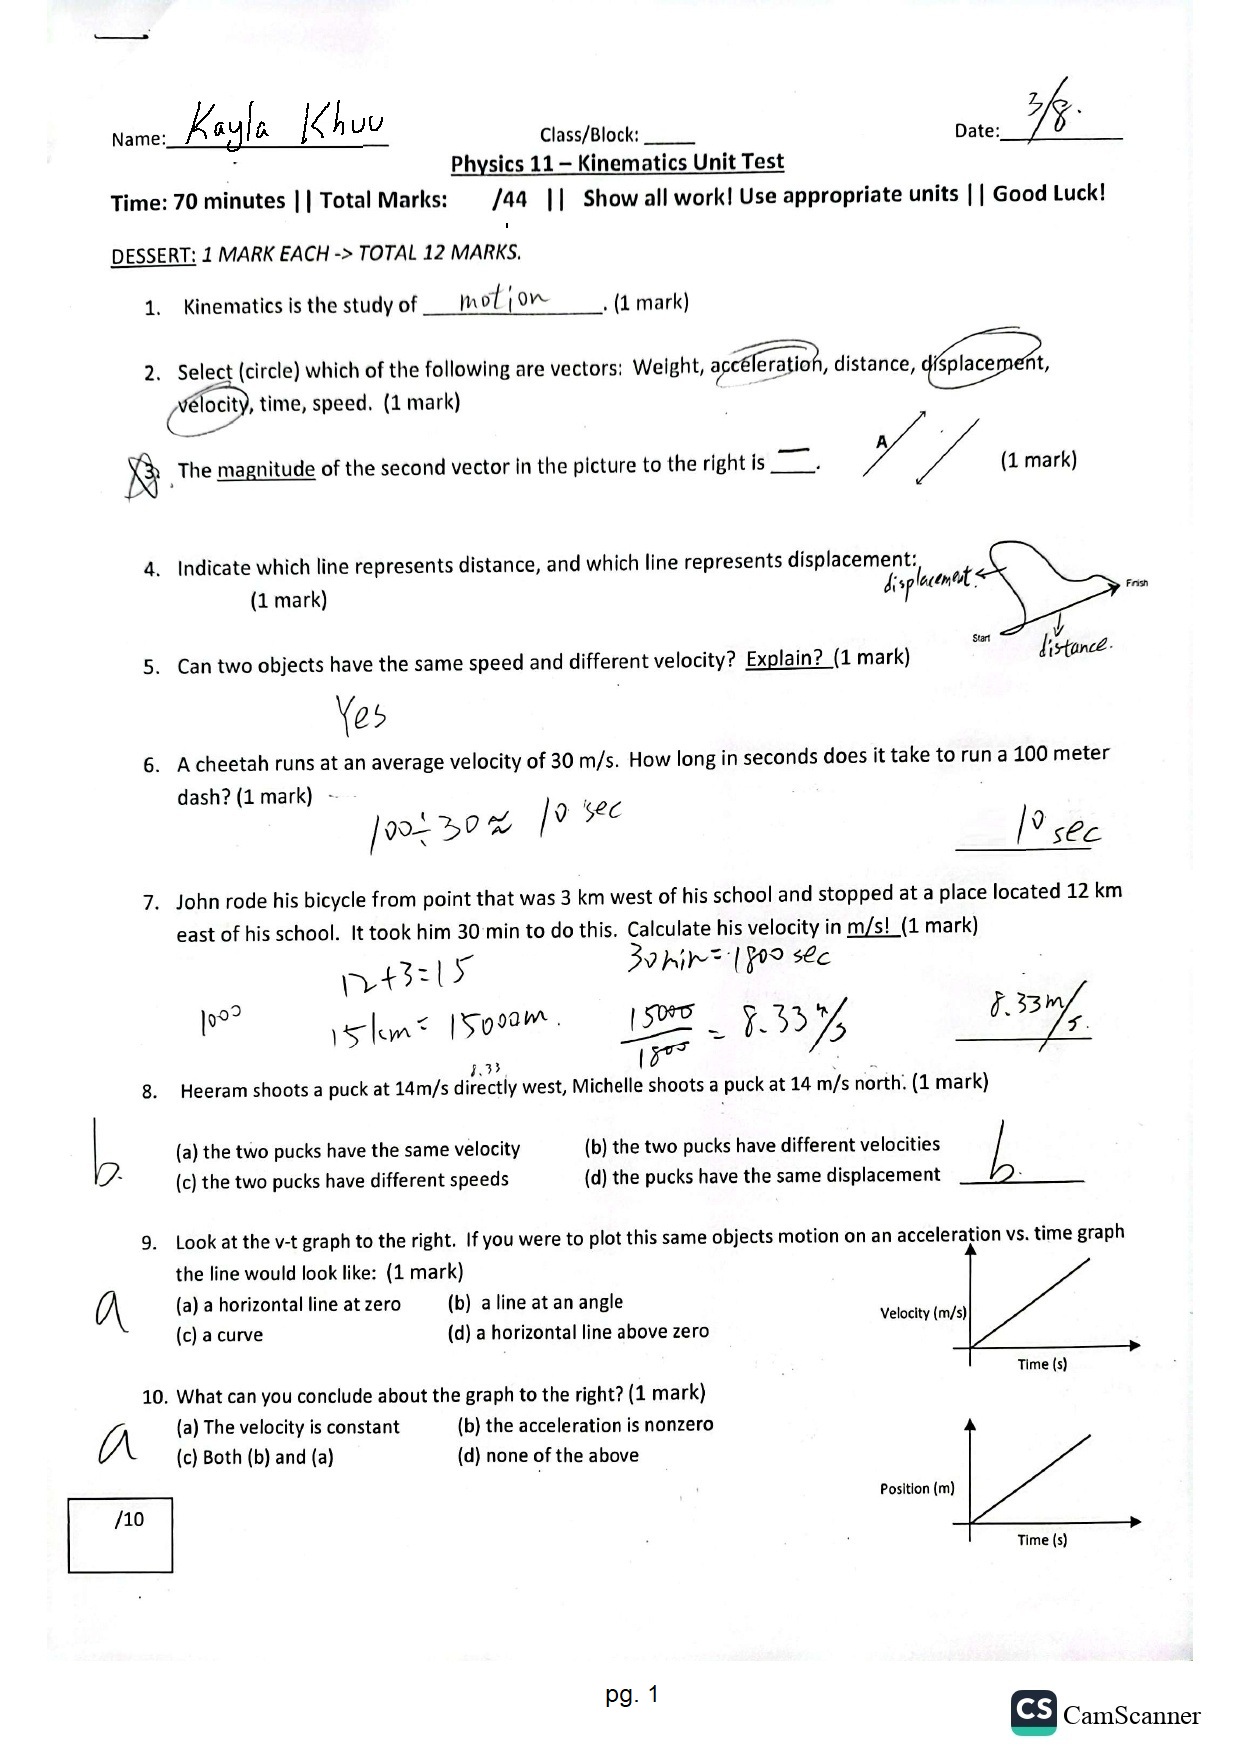 Name: Kayla Khuu Class/Block: _____ Date: 3/8.
Physics 11 – Kinematics Unit Test
Time: 70 minutes || Total Marks: /44 || Show all work! Use appropriate units || Good Luck!
DESSERT: 1 MARK EACH -> TOTAL 12 MARKS.
1. Kinematics is the study of motion. (1 mark)
2. Select (circle) which of the following are vectors: Weight, acceleration, distance, displacement,
velocity, time, speed. (1 mark)
3. The magnitude of the second vector in the picture to the right is —. A (1 mark)
4. Indicate which line represents distance, and which line represents displacement:
(1 mark)
displacement.
Finish
Start
distance.
5. Can two objects have the same speed and different velocity? Explain? (1 mark)
Yes
6. A cheetah runs at an average velocity of 30 m/s. How long in seconds does it take to run a 100 meter
dash? (1 mark)
100÷30≈ 10 sec
10 sec
7. John rode his bicycle from point that was 3 km west of his school and stopped at a place located 12 km
east of his school. It took him 30 min to do this. Calculate his velocity in m/s! (1 mark)
12+3=15 30min=1800 sec
1000 15km= 15000m. 15000/1800 = 8.33 m/s 8.33m/s.
8.33
8. Heeram shoots a puck at 14m/s directly west, Michelle shoots a puck at 14 m/s north. (1 mark)
b. (a) the two pucks have the same velocity (b) the two pucks have different velocities
(c) the two pucks have different speeds (d) the pucks have the same displacement b.
9. Look at the v-t graph to the right. If you were to plot this same objects motion on an acceleration vs. time graph
the line would look like: (1 mark)
a (a) a horizontal line at zero (b) a line at an angle
(c) a curve (d) a horizontal line above zero
Velocity (m/s)
Time (s)
10. What can you conclude about the graph to the right? (1 mark)
a (a) The velocity is constant (b) the acceleration is nonzero
(c) Both (b) and (a) (d) none of the above
Position (m)
Time (s)
/10
pg. 1
CS CamScanner